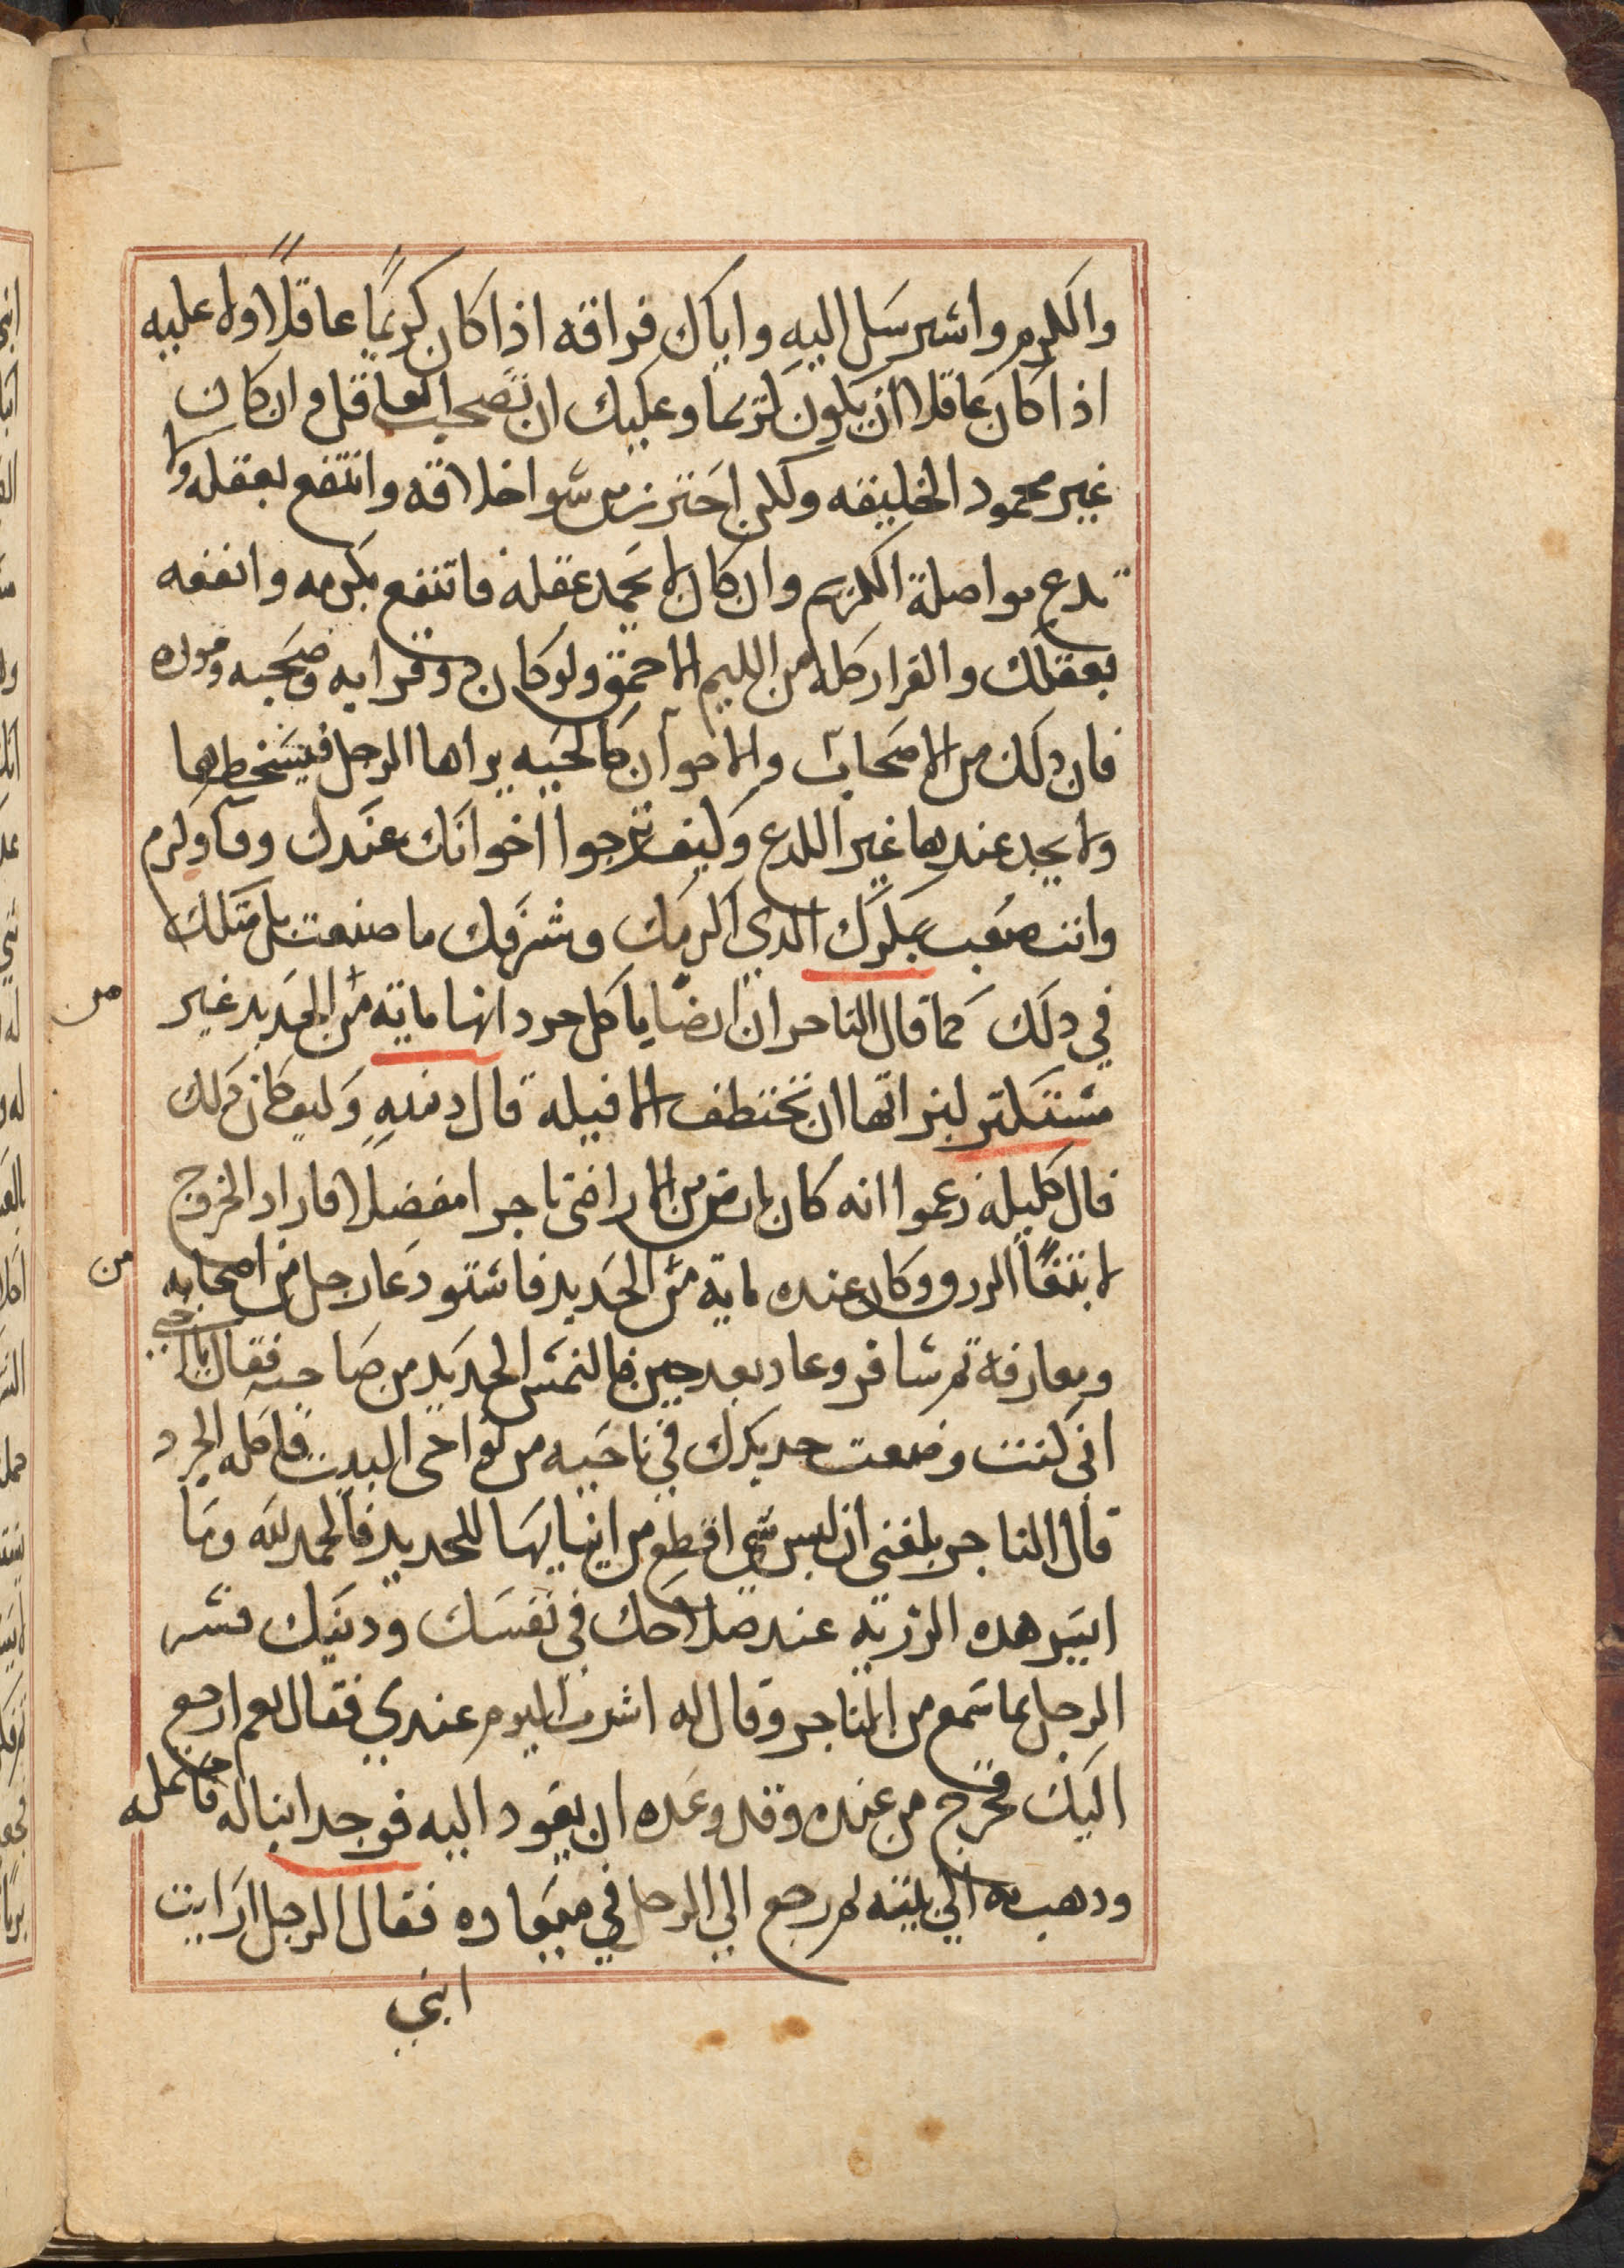 والكرم واشرسل اليه واياك فراقه اذا كان كريمًا عاقلًا ولا عليه
اذا كان عاقلا ان يكون كريما وعليك ان تصحب العاقل وان كان
غير محمود الخليقه ولكن احترز من سو اخلاقه وانتفع بعقله ولا
تدع مواصلة الكريم وان كان لا تحمد عقله فانتفع بكرمه وانفعه
بعقلك والفرار كله من الليم الاحمق ولو كان ذو قرابه وصحبه وموده
فان دلك من الاصحاب والاخوان كالحيه يراها الرجل فيسخطها
ولا يجد عندها غير اللدع وكيف ترجوا اخوانك عندك وفا وكرم
وانت صنعت بملكك الدي اكرمك وشرفك ما صنعت بل مثلك
في دلك كما قال التاجر ان ارضًا ياكل جردانها مايه من الحديد غير
مستنكر لبزاتها ان تختطف الافيله قال دمنه وكيف كان دلك
قال كليله زعموا انه كان بارض من الاراضي تاجرا مفضلا فاراد الخروج
لابتغا الرزق وكان عنده مايه من الحديد فاستودعها رجل من اصحابه
ومعارفه ثم سافر وعاد بعد حين فالتمس الحديد من صاحبه فقال يا اخي
اني كنت وضعت حديدك في ناحيه من نواحي البيت فاكله الجرد
قال التاجر بلغني ان ليس شي اقطع من انيابها للحديد فالحمد لله وما
ايسر هده الرزيه عند صلاحك في نفسك ودينك فسر
الرجل بما سمع من التاجر وقال له اشرب اليوم عندي فقال نعم ارجع
اليك فخرج من عنده وقد وعده ان يعود اليه فوجد ابنا له فحمله
ودهب به الي بيته ثم رجع الي الرجل في ميعاده فقال الرجل ارايت
ابني
من
من